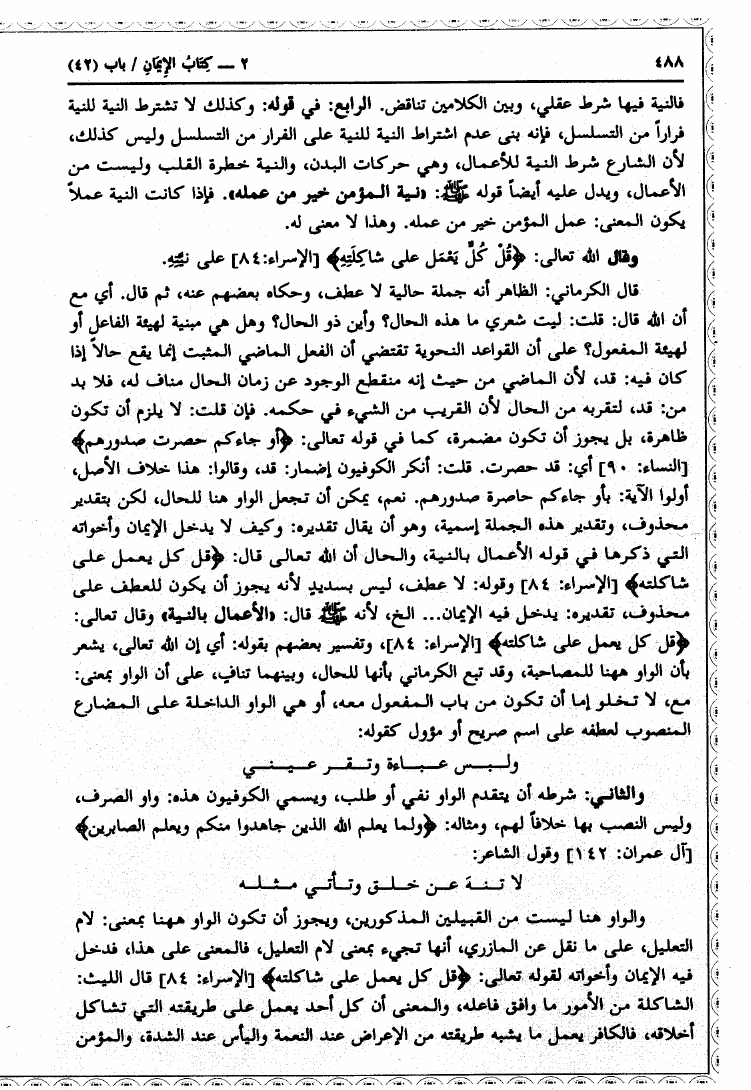 ٤٨٨
٢ ــ كِتَابُ الإِيمَانِ / باب (٤٢)
فالنية فيها شرط عقلي، وبين الكلامين تناقض. الرابع: في قوله: وكذلك لا تشترط النية للنية
فراراً من التسلسل، فإنه بنى عدم اشتراط النية للنية على الفرار من التسلسل وليس كذلك،
لأن الشارع شرط النية للأعمال، وهي حركات البدن، والنية خطرة القلب وليست من
الأعمال، ويدل عليه أيضاً قوله ﷺ: «نية المؤمن خير من عمله». فإذا كانت النية عملاً
يكون المعنى: عمل المؤمن خير من عمله. وهذا لا معنى له.
وقال الله تعالى: ﴿قُلْ كُلٌّ يَعْمَل على شاكِلَتِهِ﴾ [الإسراء:٨٤] على نِيَّتِهِ.
قال الكرماني: الظاهر أنه جملة حالية لا عطف، وحكاه بعضهم عنه، ثم قال. أي مع
أن الله قال: قلت: ليت شعري ما هذه الحال؟ وأين ذو الحال؟ وهل هي مبنية لهيئة الفاعل أو
لهيئة المفعول؟ على أن القواعد النحوية تقتضي أن الفعل الماضي المثبت إنما يقع حالاً إذا
كان فيه: قد، لأن الماضي من حيث إنه منقطع الوجود عن زمان الحال مناف له، فلا بد
من: قد، لتقربه من الحال لأن القريب من الشيء في حكمه. فإن قلت: لا يلزم أن تكون
ظاهرة، بل يجوز أن تكون مضمرة، كما في قوله تعالى: ﴿أو جاءكم حصرت صدورهم﴾
[النساء: ٩٠] أي: قد حصرت. قلت: أنكر الكوفيون إضمار: قد، وقالوا: هذا خلاف الأصل،
أولوا الآية: بأو جاءكم حاصرة صدورهم. نعم، يمكن أن تجعل الواو هنا للحال، لكن بتقدير
محذوف، وتقدير هذه الجملة إسمية، وهو أن يقال تقديره: وكيف لا يدخل الإيمان وأخواته
التي ذكرها في قوله الأعمال بالنية، والحال أن الله تعالى قال: ﴿قل كل يعمل على
شاكلته﴾ [الإسراء: ٨٤] وقوله: لا عطف، ليس بسديدٍ لأنه يجوز أن يكون للعطف على
محذوف، تقديره: يدخل فيه الإيمان... الخ، لأنه ﷺ قال: «الأعمال بالنية» وقال تعالى:
﴿قل كل يعمل على شاكلته﴾ [الإسراء: ٨٤]، وتفسير بعضهم بقوله: أي إن الله تعالى، يشعر
بأن الواو ههنا للمصاحبة، وقد تبع الكرماني بأنها للحال، وبينهما تنافٍ، على أن الواو بمعنى:
مع، لا تخلو إما أن تكون من باب المفعول معه، أو هي الواو الداخلة على المضارع
المنصوب لعطفه على اسم صريح أو مؤول كقوله:
ولبس عباءة وتقر عيني
والثاني: شرطه أن يتقدم الواو نفي أو طلب، ويسمي الكوفيون هذه: واو الصرف،
وليس النصب بها خلافاً لهم، ومثاله: ﴿ولما يعلم الله الذين جاهدوا منكم ويعلم الصابرين﴾
[آل عمران: ١٤٢] وقول الشاعر:
لا تنهَ عن خلق وتأتي مثله
والواو هنا ليست من القبيلين المذكورين، ويجوز أن تكون الواو ههنا بمعنى: لام
التعليل، على ما نقل عن المازري، أنها تجيء بمعنى لام التعليل، فالمعنى على هذا، فدخل
فيه الإيمان وأخواته لقوله تعالى: ﴿قل كل يعمل على شاكلته﴾ [الإسراء: ٨٤] قال الليث:
الشاكلة من الأمور ما وافق فاعله، والمعنى أن كل أحد يعمل على طريقته التي تشاكل
أخلاقه، فالكافر يعمل ما يشبه طريقته من الإعراض عند النعمة واليأس عند الشدة، والمؤمن